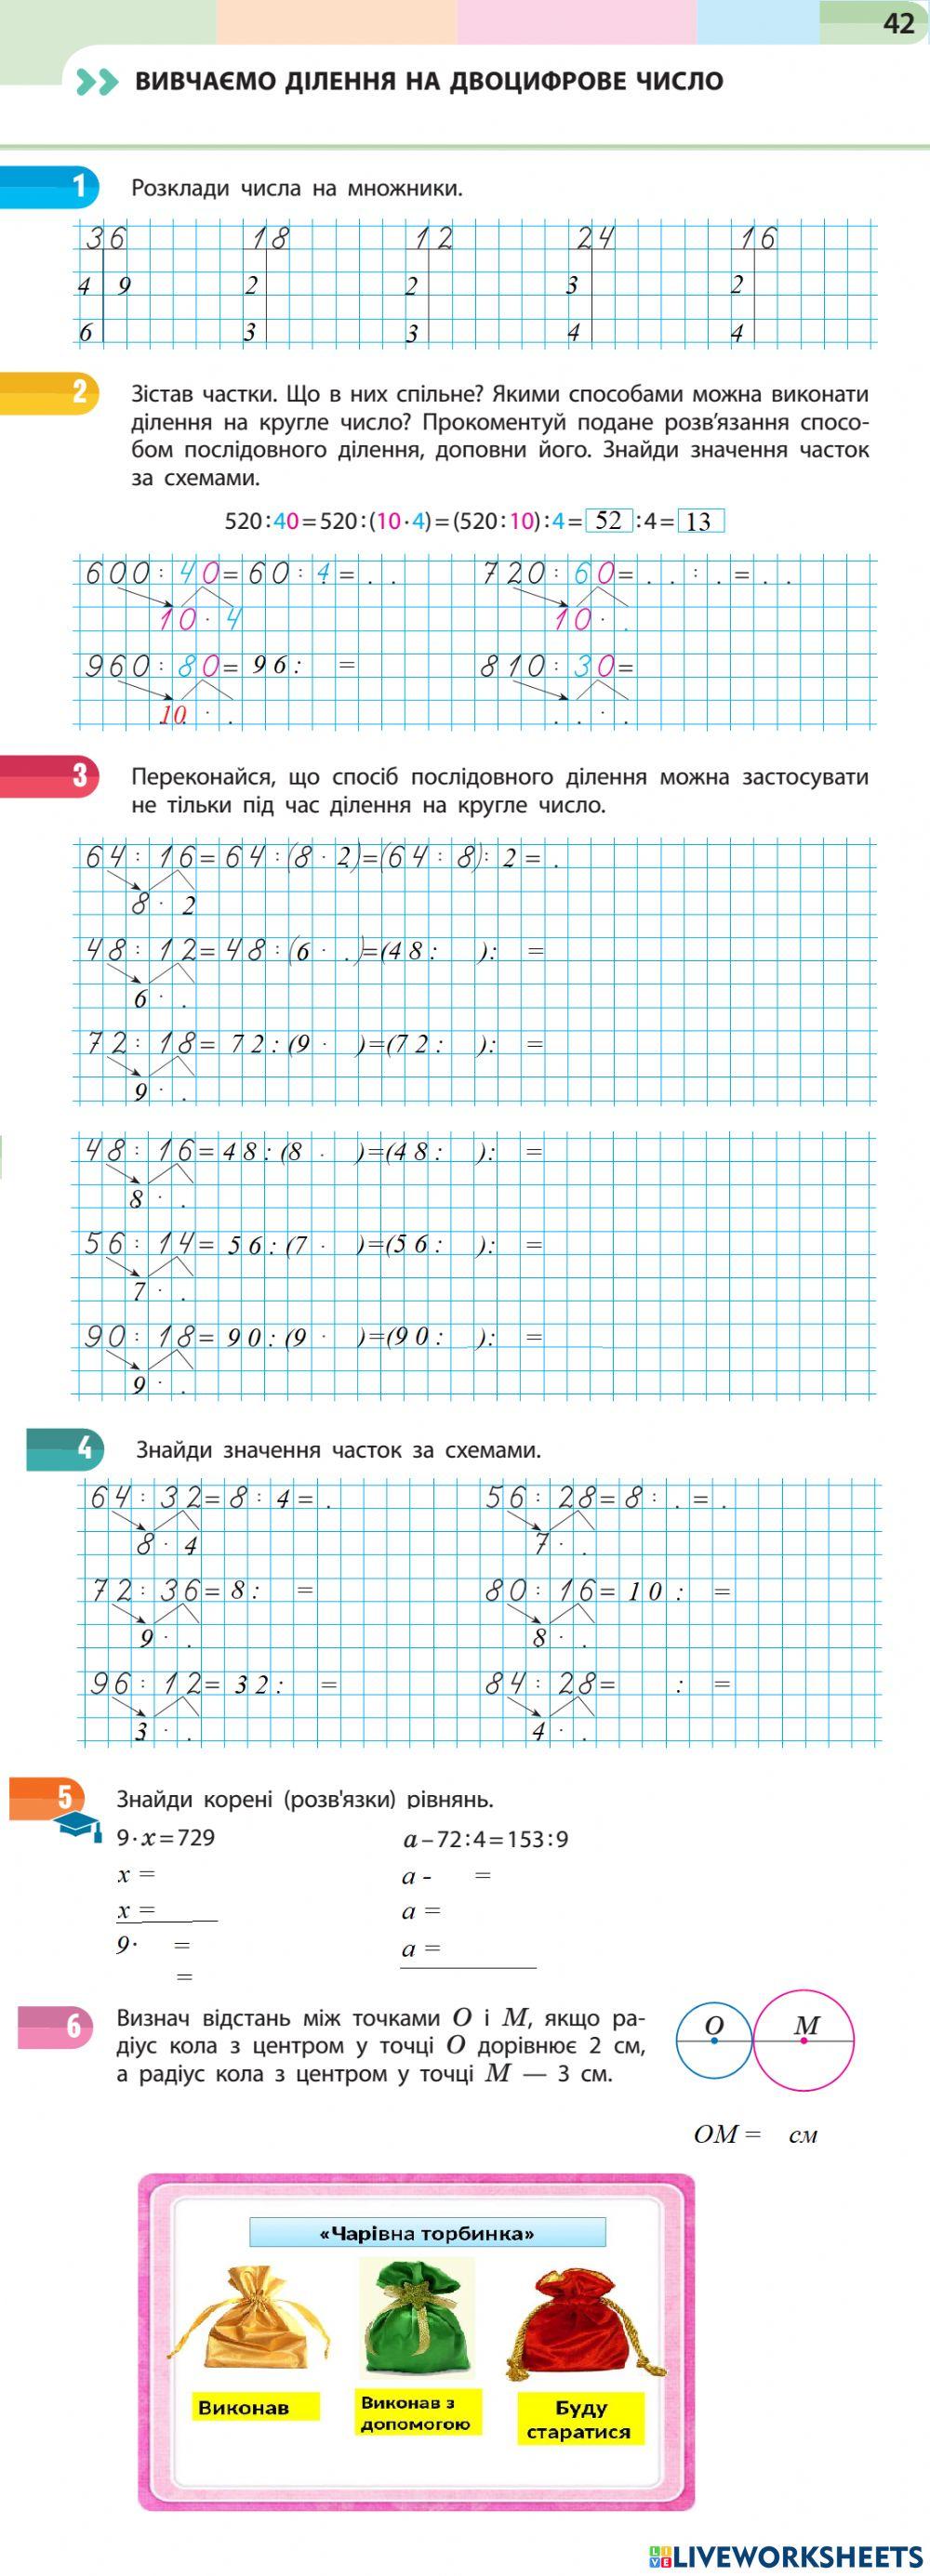 42
ВИВЧАЄМО ДІЛЕННЯ НА ДВОЦИФРОВЕ ЧИСЛО
1 Розклади числа на множники.
36 18 12 24 16
4 9 2 2 3 2
6 3 3 4 4
2 Зістав частки. Що в них спільне? Якими способами можна виконати
ділення на кругле число? Прокоментуй подане розв'язання спосо-
бом послідовного ділення, доповни його. Знайди значення часток
за схемами.
520:40=520:(10·4)=(520:10):4= 52 :4= 13
600: 40=60: 4 = . . 720: 60= . . : . = . .
10 · 4 10 · .
960: 80= 96: = 810: 30=
10 · . . . · .
3 Переконайся, що спосіб послідовного ділення можна застосувати
не тільки під час ділення на кругле число.
64: 16=64:(8 · 2)=(64 : 8): 2 = .
8 · 2
48: 12=48:(6 · .)=(48: ): =
6 · .
72: 18= 72:(9 · )=(72: ): =
9 · .
48: 16=48:(8 · )=(48: ): =
8 · .
56: 14= 56:(7 · )=(56: ): =
7 · .
90: 18= 90:(9 · )=(90: ): =
9 · .
4 Знайди значення часток за схемами.
64: 32=8: 4= . 56: 28=8: . = .
8 · 4 7 · .
72: 36=8: = 80: 16= 10 : =
9 · . 8 · .
96: 12= 32: = 84: 28= : =
3 · . 4 · .
5 Знайди корені (розв'язки) рівнянь.
9·x=729 a–72:4=153:9
x = a - =
x = a =
9· = a =
=
6 Визнач відстань між точками O і M, якщо ра-
діус кола з центром у точці O дорівнює 2 см,
а радіус кола з центром у точці M — 3 см.
O M
OM = см
«Чарівна торбинка»
Виконав
Виконав з
допомогою
Буду
старатися
LIVEWORKSHEETS